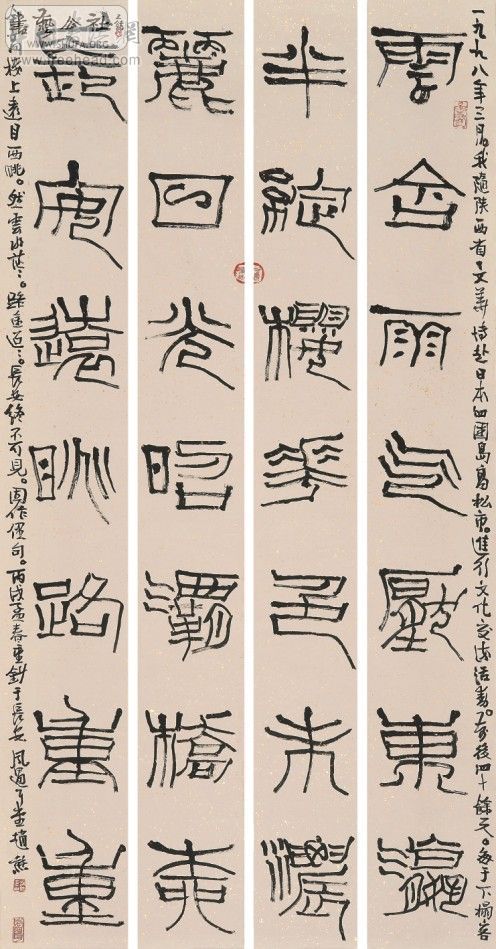 一九九八年三月。我隨陝西省文美赴日本四國島高松市。進行文化交流活動。前後四十餘天。每于下榻客
雲含雨气壓東瀛
半綻櫻花色未濃
麗日光昭灞橋
安遠眺路重重
樓上遠目西眺。然雲水茫〻。路途迢〻。長安終不可見。因作俚句。丙戌孟春重鈔于長安風過耳堂趙熊